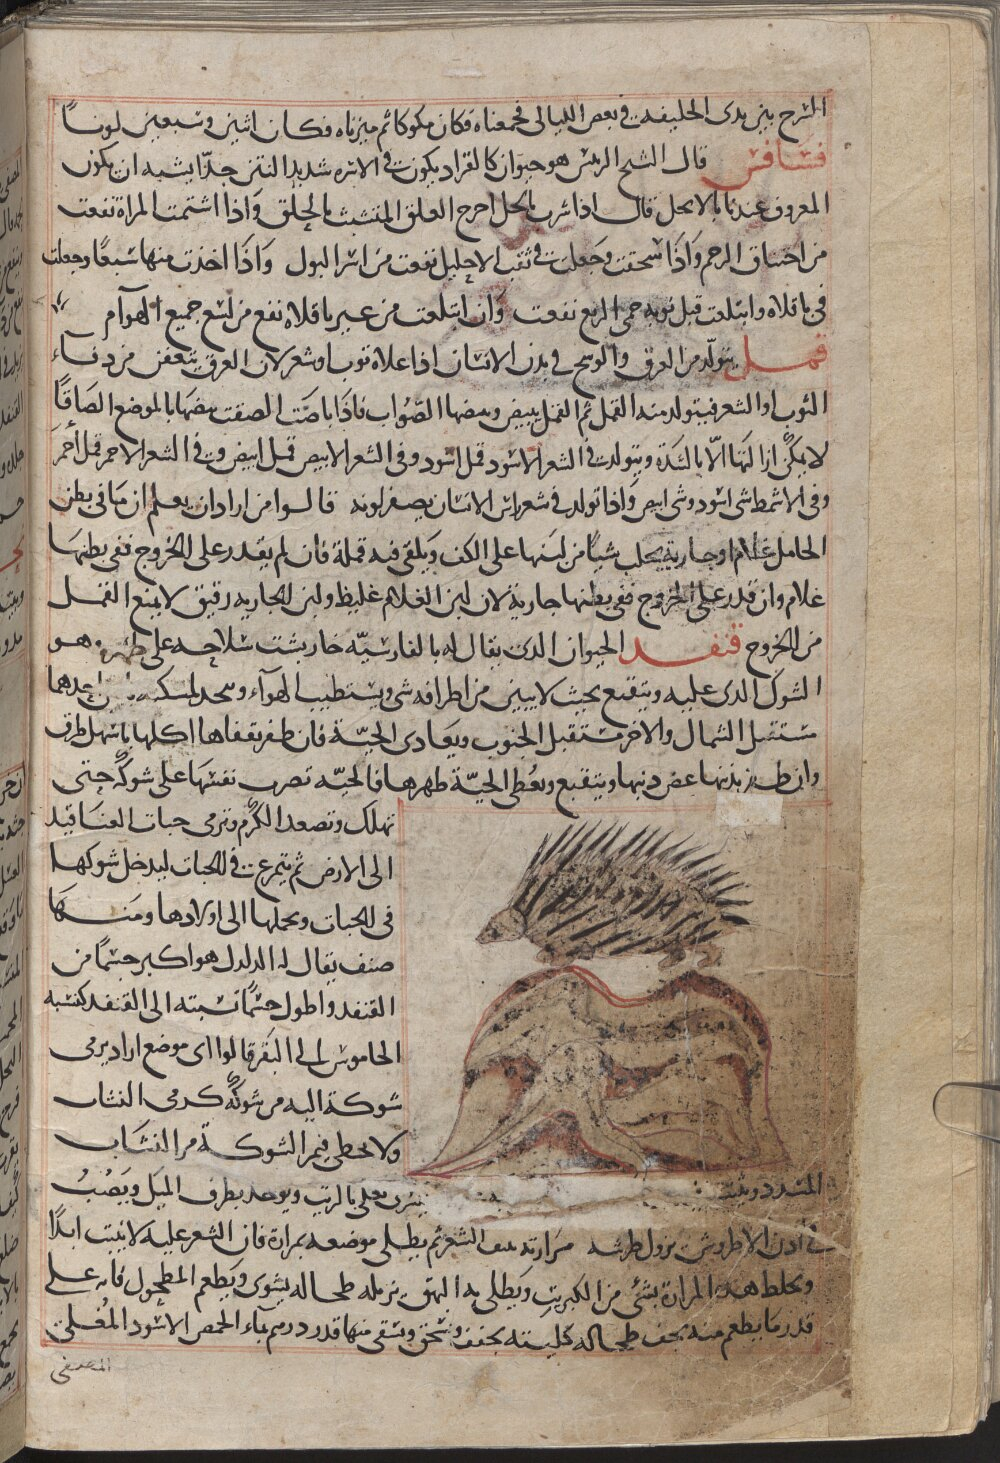 السرج بين يدي الخليفة في بعض الليالي فجمعناه فكان مكوكا ثم ميزناه فكان اثنين وسبعين لونا
فسافس قال الشيخ الرئيس هو حيوان كالقراد يكون في الاسره شديد النتن جدا يشبه ان يكون
المعروف عندنا بالانجل قال اذا شرب بالخل اخرج العلق المتشبث بالحلق واذا اشتمت المراة نفعت
من اختناق الرحم واذا سحقت وجعلت في ثقب الاحليل نفعت من اسر البول واذا اخذت منها سبعا وجعلت
في باقلاه وابتلعت قبل نوبة حمى الربع نفعت وان ابتلعت من غير باقلاة نفع من لسع جميع الهوام
قمل يتولد من العرق والوسخ في بدن الانسان اذا علاه ثوب او شعر لان العرق يتعفن من دفاء
الثوب او الشعر فيتولد منه القمل ثم القمل يبيض وبيضها الصواب فاذا باضت الصقت بيضها بالموضع الصاقا
لا يمكن ازالتها الا بالشدة ويتولد في الشعر الاسود قمل اسود وفي الشعر الابيض قمل ابيض وفي الشعر الاحمر قمل احمر
وفي الاشمط شي اسود وشي ابيض واذا تولد في شعر راس الانسان يصفر لونه قالوا من اراد ان يعلم ان ما في بطن
الحامل غلام او جارية يحلب شيا من لبنها على الكف ويلقى فيه قملة فان لم يقدر على الخروج ففي بطنها
غلام وان قدر على الخروج ففي بطنها جارية لان لبن الغلام غليظ ولبن الجارية رقيق لا يمنع القمل
من الخروج قنفد الحيوان الذي يقال له بالفارسية خاربشت سلاحه على ظهره وهو
الشوك الذي عليه ويتقبع بحيث لا يبين من اطرافه شي ويستطيب الهوآء ويتخد لمسكنه احدهما
مستقبل الشمال والاخر مستقبل الجنوب ويعادى الحية فان ظفر بقفاها اكلها باسهل طرق
وان ظفر بذنبها عض ذنبها ويتقبع ويعطى الحية ظهرها فالحية تضرب نفسها على شوكه حتى
تهلك وتصعد الكرم وترمى حبات العناقيد
الى الارض ثم يتمرغ في الحبات ليدخل شوكها
في الحبات وتحملها الى اولادها ومنها
صنف يقال له الدلدل هو اكبر جسما من
القنفد واطول جسما نسبته الى القنفد كنسبه
الجاموس الى البقر قالوا اى موضع اراد يرمى
شوكة اليه من شوكه كرمى النشاب
ولا يخطى فيمر الشوكة مر النشاب
بالزيت ويوخد بطرف الميل ويصب
في اذن الاطروش يزول طرشه مرارته ينتف الشعر ثم يطلى موضعه بمرارة فان الشعر عليه لا ينبت ابدا
وتخلط هذه المرارة بشئ من الكبريت ويطلى به البهق يزيله طحاله يشوى ويطعم المطحول فانه على
قدر ما يطعم منه يجف طحاله كليته تجفف وتسحق وتسقى منها قدر درهم بماء الحمص الاسود المغلى
المصفى